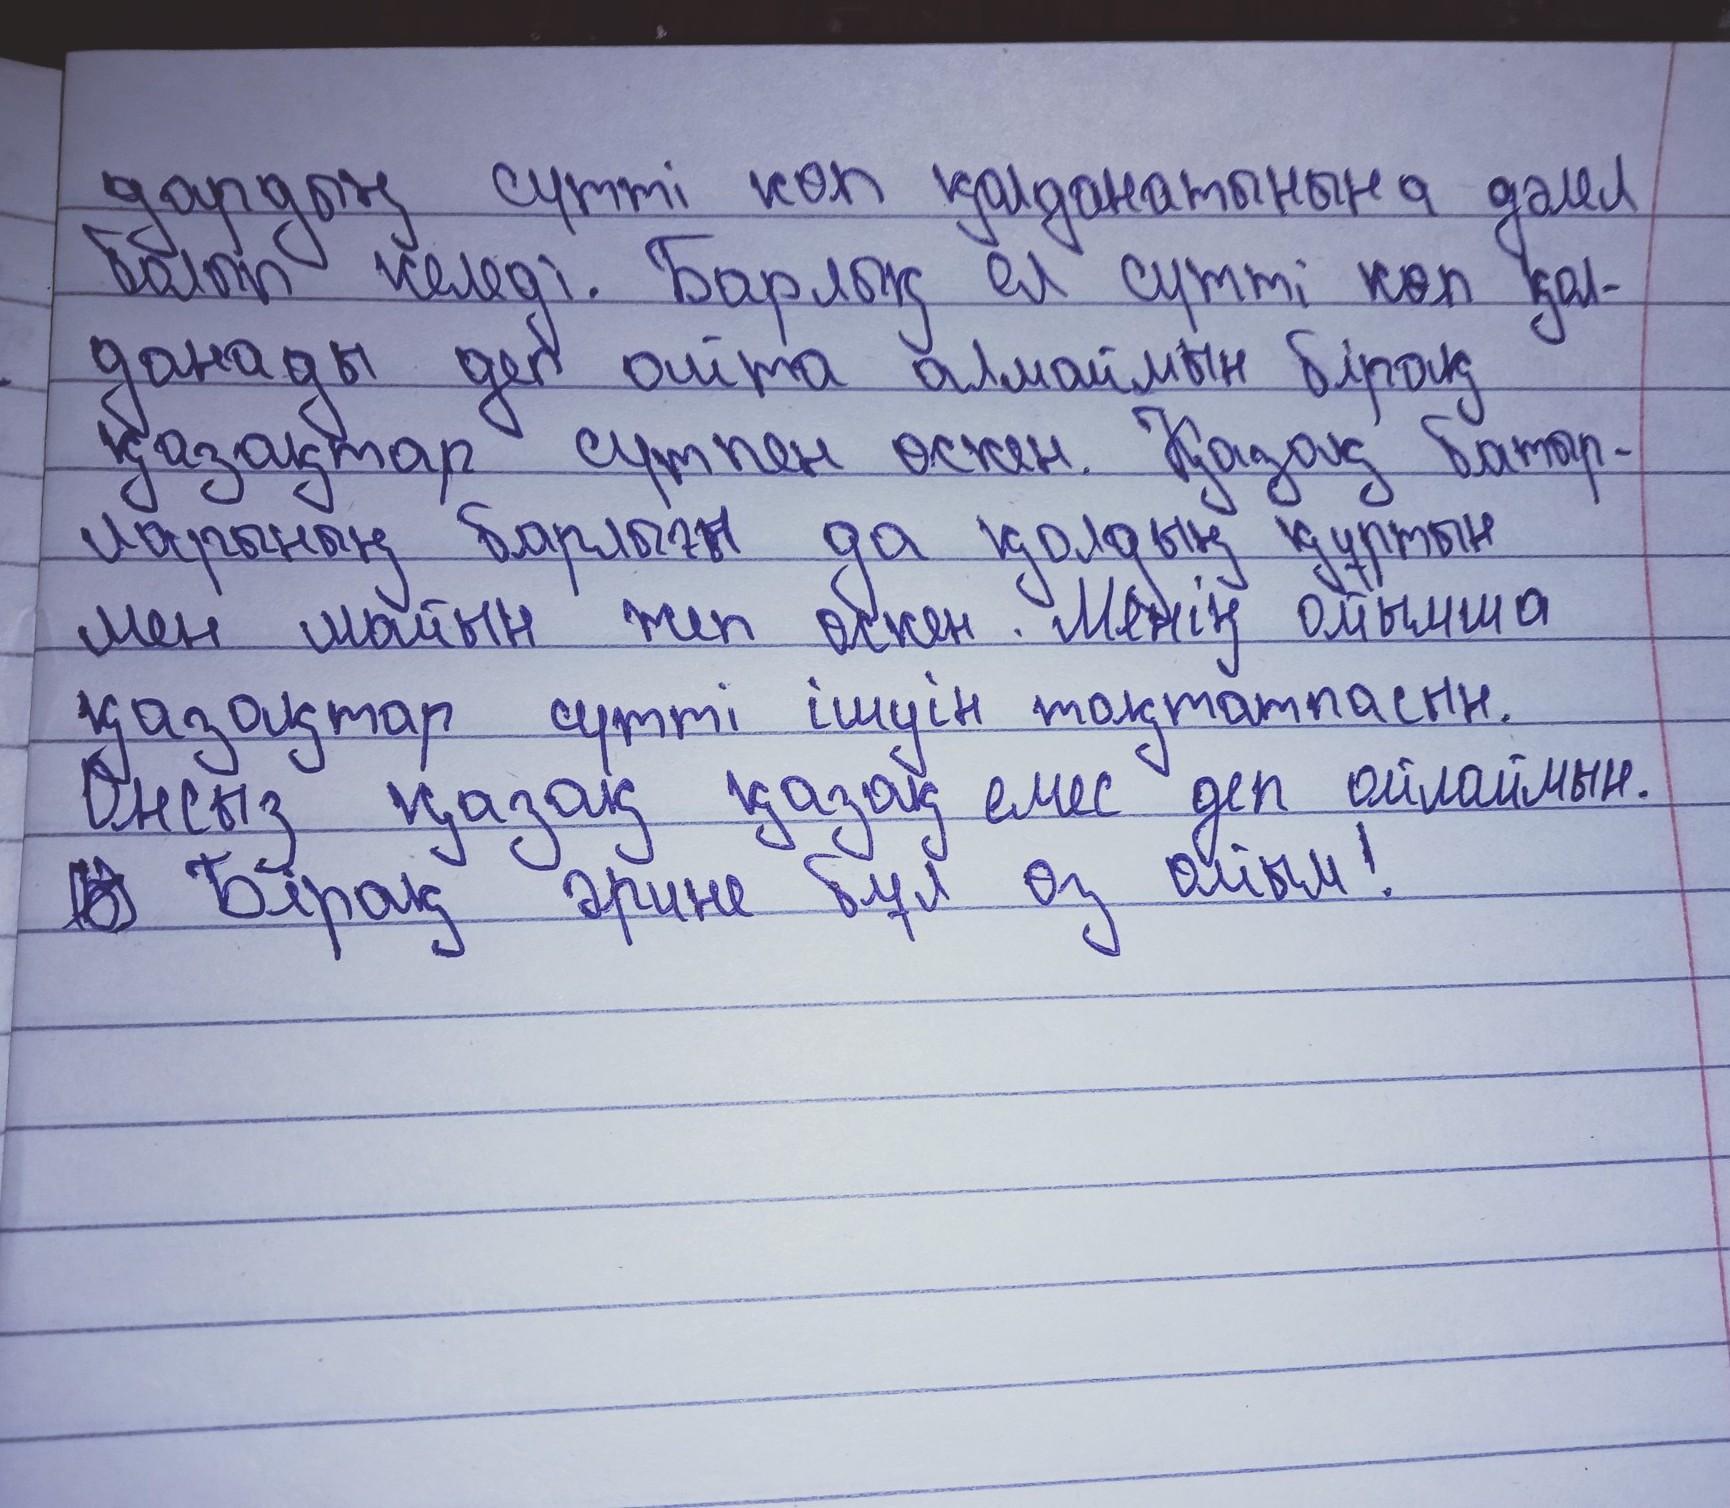 дардың сүтті көп қолданатынына дәлел
болып келеді. Барлық ел сүтті көп қол-
данады деп айта алмаймын бірақ
қазақтар сүтпен өскен. Қазақ батыр-
ларының барлығы да қолдың құртын
мен майын жеп өскен. Менің ойымша
қазақтар сүтті ішуін тоқтатпасын.
Онсыз қазақ қазақ емес деп ойлаймын.
Бірақ әрине бұл өз ойым!